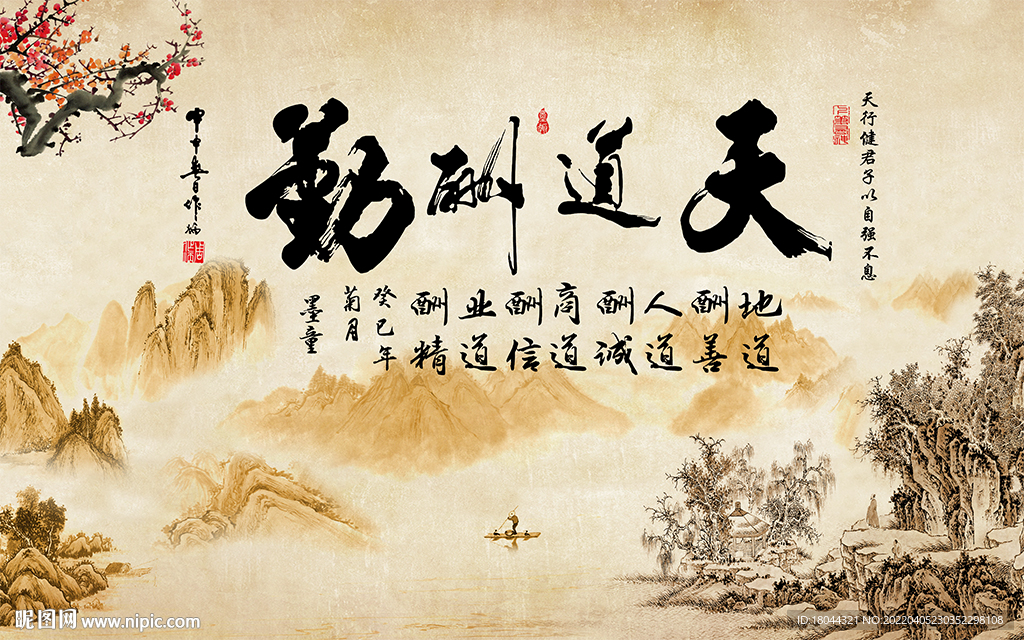 天道酬勤
天行健君子以自强不息
地道
酬善
人道
酬诚
商道
酬信
业道
酬精
癸巳年
菊月
墨童
昵图网 www.nipic.com
ID:18044321 NO:20220405230352298108